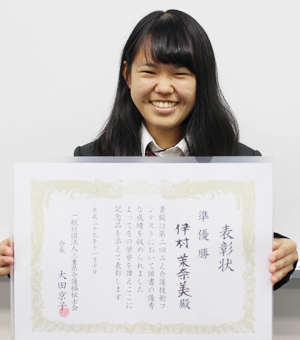 表彰状
準優勝
伊村菜奈美殿
貴殿は第二回みえ介護技術コ
ンテストにおいて頭書の優秀
な成績を収められました
よってその栄誉を讃えここに
記念品を添えて表彰します
平成二十九年十二月十日
一般社団法人三重県介護福祉士会
会長 大田京子